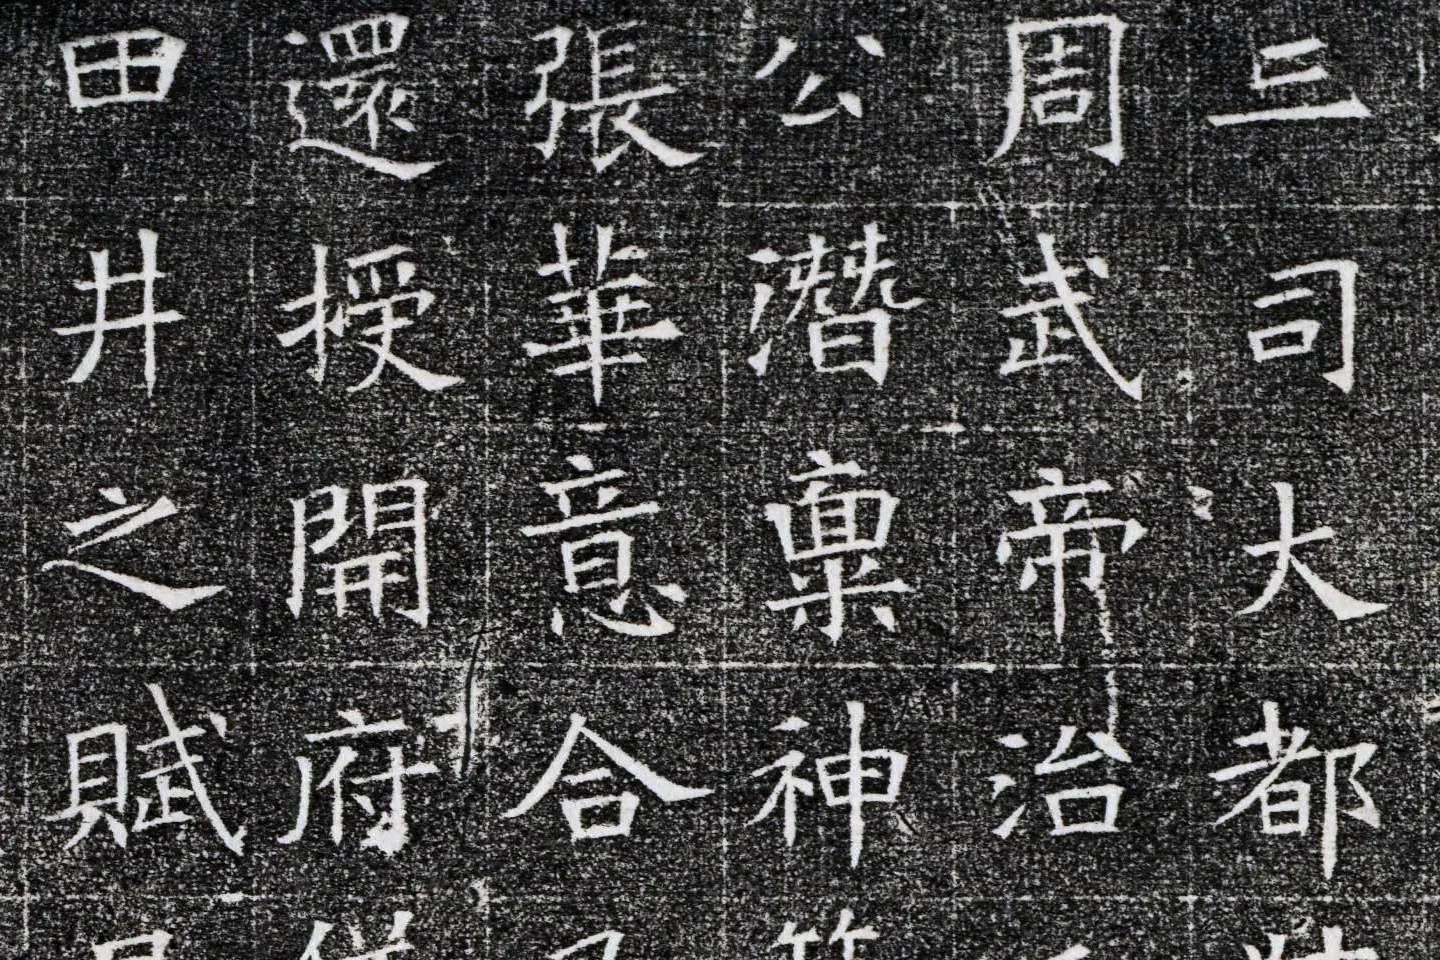 三司大都
周武帝治
公潛稟神
張華意合
還授開府
田井之賦